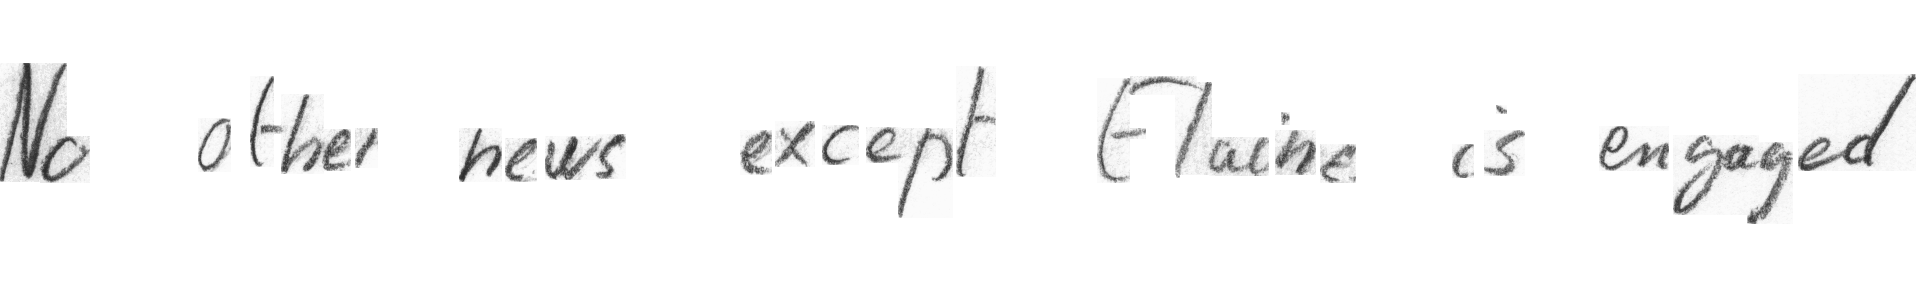 No other news except Elaine is engaged